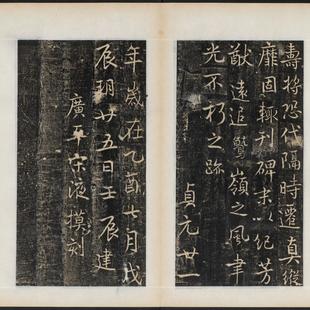 壽將恐代隔時遷真縱
靡固輙刊碑耒以紀芳
猷遠追鷲嶺之風聿
光不朽之跡 貞元廿一
年歲在乙酉七月戊
辰朔廿五日壬辰建
廣平宋液摸刻